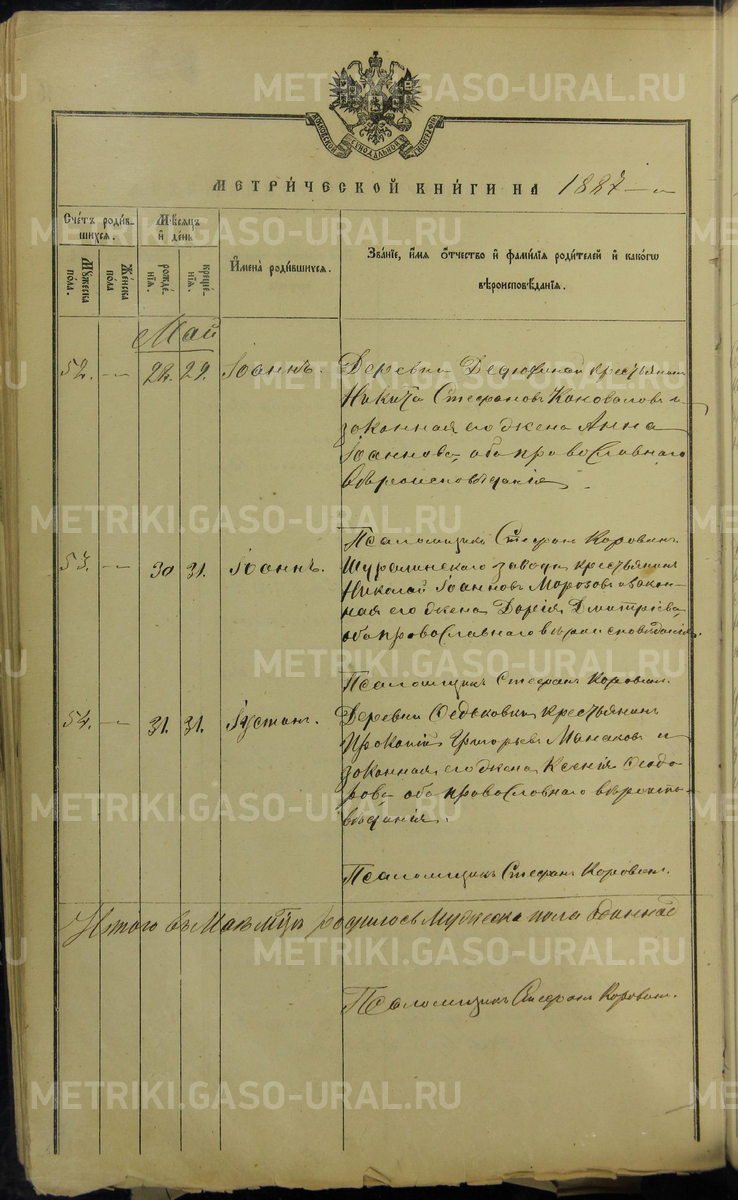 METRIKI.GASO-URAL.RU
МОСКОВСКОЙ СѴНОДАЛЬНОЙ ТИПОГРАФІИ
МЕТРИ́ЧЕСКОЙ КНИ́ГИ НА 1887
Сче́тъ роди́в-шихся.
Мꙋ́жеска по́ла.
Же́нска по́ла
Мѣ́сяцъ и҆ де́нь
рожде́-нїѧ.
креще́-нїѧ.
И҆мена̀ роди́вшихсѧ.
Зва́нїе, и҆́мѧ ѻ҆́тчество и҆ фами́лїѧ роди́телей и҆ како́гѡ
вѣроисповѣ́данїѧ.
Май
52. — 28. 29. Іоаннъ. Деревни Дедюхиной крестьянинъ
Никита Стефановъ Коноваловъ и
законная его жена Анна
Іоаннова, оба православнаго
вѣроисповѣданія.
Псаломщикъ Стефанъ Коровинъ.
53. — 30 31. Іоаннъ. Шуралинскаго завода крестьянинъ
Николай Іоанновъ Морозовъ и закон-
ная его жена Дарія Дмитріева
оба православнаго вѣроисповѣданія.
Псаломщикъ Стефанъ Коровин.
54. — 31. 31. Іустин. Деревни Федьковки крестьянинъ
Прокопій Григорьевъ Манаковъ и
законная его жена Ксенія Феодо-
рова оба православнаго вѣроиспо-
вѣданія.
Псаломщикъ Стефанъ Коровин.
Итого въ Маѣ м-цѣ родилось мужеска пола
Псаломщикъ Стефанъ Коровин.